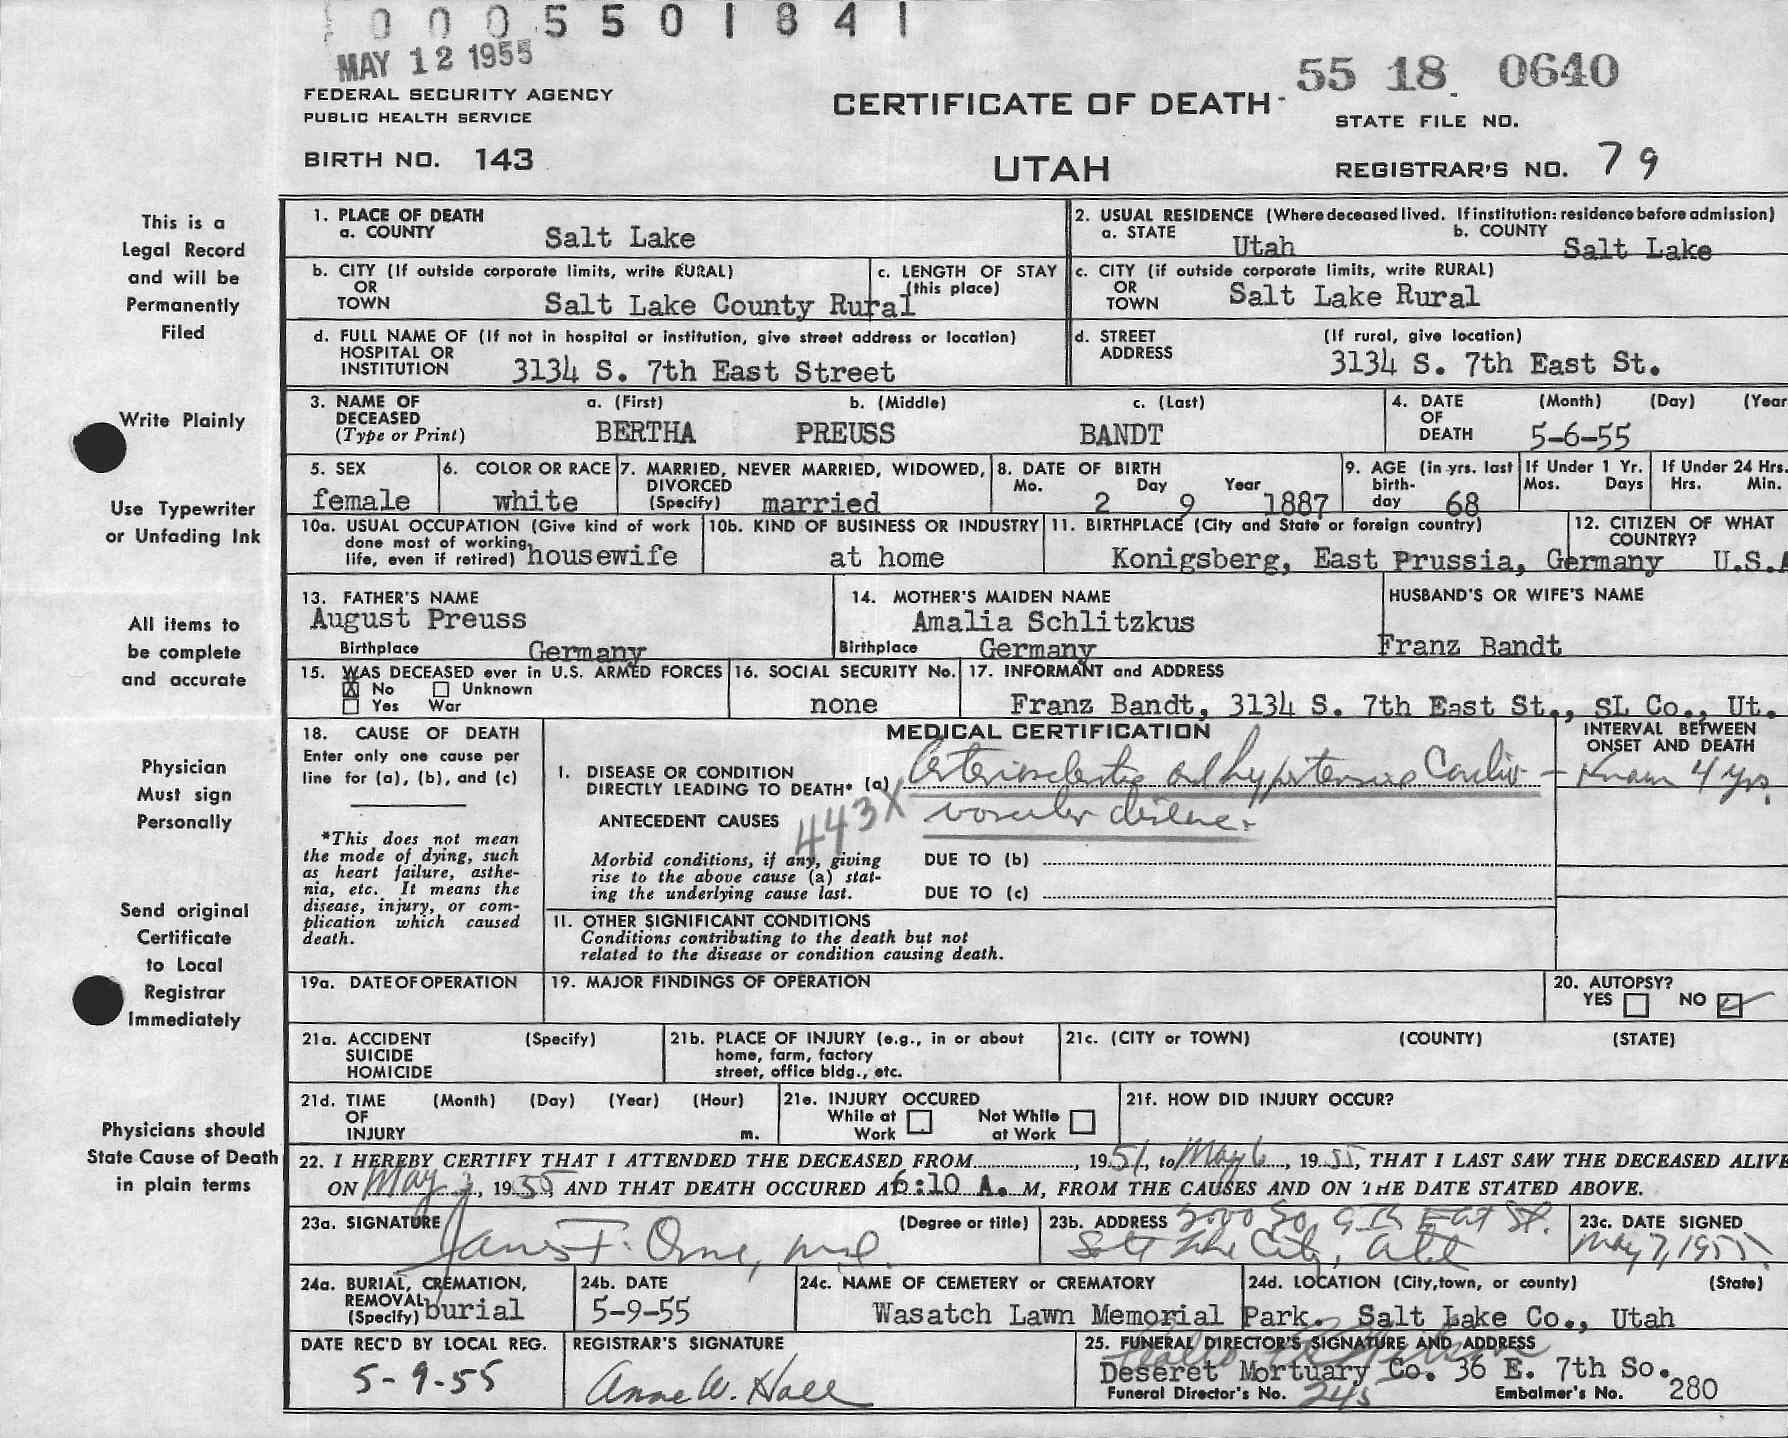 0005501841
MAY 12 1955
55 18 0640
FEDERAL SECURITY AGENCY
PUBLIC HEALTH SERVICE
CERTIFICATE OF DEATH
STATE FILE NO.
BIRTH NO. 143
UTAH
REGISTRAR'S NO. 79
This is a
Legal Record
and will be
Permanently
Filed
Write Plainly
Use Typewriter
or Unfading Ink
All items to
be complete
and accurate
Physician
Must sign
Personally
Send original
Certificate
to Local
Registrar
Immediately
Physicians should
State Cause of Death
in plain terms
1. PLACE OF DEATH
a. COUNTY Salt Lake
2. USUAL RESIDENCE (Where deceased lived. If institution: residence before admission)
a. STATE Utah b. COUNTY Salt Lake
b. CITY (If outside corporate limits, write RURAL)
OR
TOWN Salt Lake County Rural
c. LENGTH OF STAY
(this place)
c. CITY (if outside corporate limits, write RURAL)
OR
TOWN Salt Lake Rural
d. FULL NAME OF (If not in hospital or institution, give street address or location)
HOSPITAL OR
INSTITUTION 3134 S. 7th East Street
d. STREET (If rural, give location)
ADDRESS 3134 S. 7th East St.
3. NAME OF a. (First) b. (Middle) c. (Last)
DECEASED
(Type or Print) BERTHA PREUSS BANDT
4. DATE (Month) (Day) (Year
OF
DEATH 5-6-55
5. SEX
female
6. COLOR OR RACE
white
7. MARRIED, NEVER MARRIED, WIDOWED,
DIVORCED
(Specify) married
8. DATE OF BIRTH
Mo. Day Year
2 9 1887
9. AGE (in yrs. last
birth-
day 68
If Under 1 Yr.
Mos. Days
If Under 24 Hrs.
Hrs. Min.
10a. USUAL OCCUPATION (Give kind of work
done most of working
life, even if retired) housewife
10b. KIND OF BUSINESS OR INDUSTRY
at home
11. BIRTHPLACE (City and State or foreign country)
Konigsberg, East Prussia, Germany
12. CITIZEN OF WHAT
COUNTRY?
U.S.A
13. FATHER'S NAME
August Preuss
Birthplace Germany
14. MOTHER'S MAIDEN NAME
Amalia Schlitzkus
Birthplace Germany
HUSBAND'S OR WIFE'S NAME
Franz Bandt
15. WAS DECEASED ever in U.S. ARMED FORCES
X No Unknown
Yes War
16. SOCIAL SECURITY No.
none
17. INFORMANT and ADDRESS
Franz Bandt, 3134 S. 7th East St., SL Co., Ut.
18. CAUSE OF DEATH
Enter only one cause per
line for (a), (b), and (c)
*This does not mean
the mode of dying, such
as heart failure, asthe-
nia, etc. It means the
disease, injury, or com-
plication which caused
death.
MEDICAL CERTIFICATION
INTERVAL BETWEEN
ONSET AND DEATH
I. DISEASE OR CONDITION
DIRECTLY LEADING TO DEATH* (a) Arteriosclerotic and hypertensive Cardio- Known 4 yrs.
vascular disease.
ANTECEDENT CAUSES
443X
Morbid conditions, if any, giving
rise to the above cause (a) stat-
ing the underlying cause last.
DUE TO (b)
DUE TO (c)
II. OTHER SIGNIFICANT CONDITIONS
Conditions contributing to the death but not
related to the disease or condition causing death.
19a. DATE OF OPERATION
19. MAJOR FINDINGS OF OPERATION
20. AUTOPSY?
YES NO ✓
21a. ACCIDENT (Specify)
SUICIDE
HOMICIDE
21b. PLACE OF INJURY (e.g., in or about
home, farm, factory
street, office bldg., etc.
21c. (CITY or TOWN) (COUNTY) (STATE)
21d. TIME (Month) (Day) (Year) (Hour)
OF
INJURY m.
21e. INJURY OCCURED
While at Work Not While at Work
21f. HOW DID INJURY OCCUR?
22. I HEREBY CERTIFY THAT I ATTENDED THE DECEASED FROM, 1951, to May 6, 1955, THAT I LAST SAW THE DECEASED ALIVE
ON May, 1955, AND THAT DEATH OCCURED AT 6:10 A. M, FROM THE CAUSES AND ON THE DATE STATED ABOVE.
23a. SIGNATURE (Degree or title)
James F. Orme, M.D.
23b. ADDRESS 2000 So. 9th East St.
Salt Lake City, Utah
23c. DATE SIGNED
May 7, 1955
24a. BURIAL, CREMATION,
REMOVAL
(Specify) burial
24b. DATE
5-9-55
24c. NAME OF CEMETERY or CREMATORY
Wasatch Lawn Memorial Park.
24d. LOCATION (City, town, or county) (State)
Salt Lake Co., Utah
DATE REC'D BY LOCAL REG.
5-9-55
REGISTRAR'S SIGNATURE
Anne W. Hall
25. FUNERAL DIRECTOR'S SIGNATURE AND ADDRESS
Deseret Mortuary Co. 36 E. 7th So.
Funeral Director's No. 245 Embalmer's No. 280